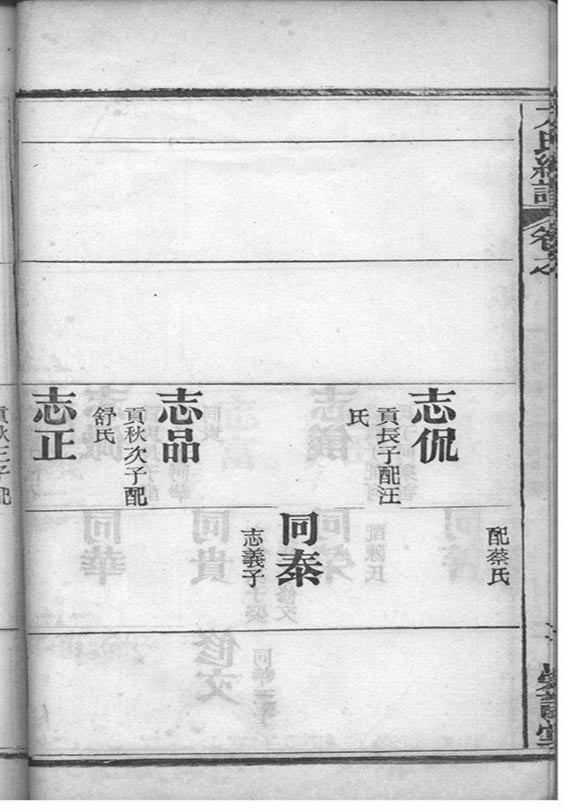 氏總譜
卷之
配蔡氏
志侃
貢長子配汪
氏
同泰
志義子
志品
貢秋次子配
舒氏
志正
貢秋三子配